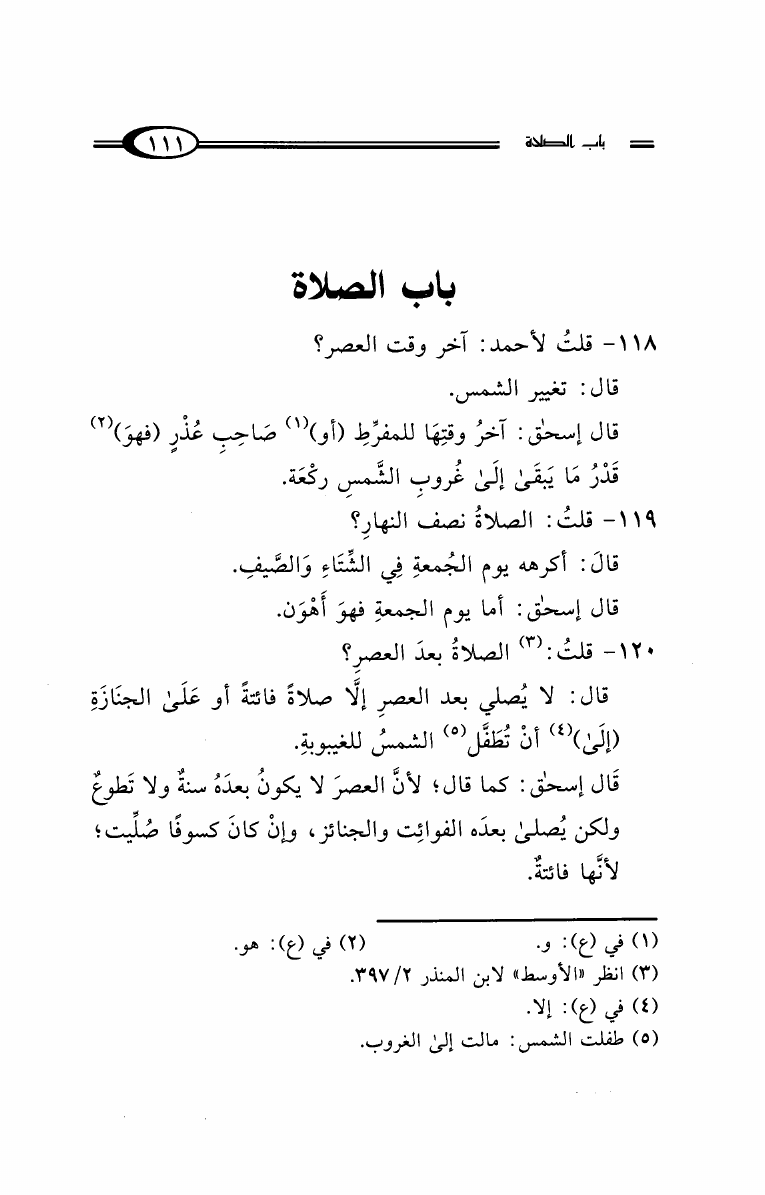 باب الصلاة ١١١
باب الصلاة
١١٨- قلتُ لأحمد: آخر وقت العصر؟
قال: تغيير الشمس.
قال إسحٰق: آخرُ وقتِهَا للمفرِّطِ (أو)(١) صَاحِبِ عُذْرٍ (فهوَ)(٢)
قَدْرُ مَا يَبقَىٰ إلَىٰ غُروبِ الشَّمسِ ركْعَة.
١١٩- قلتُ: الصلاةُ نصف النهارِ؟
قالَ: أكرهه يوم الجُمعةِ فِي الشِّتَاءِ وَالصَّيفِ.
قال إسحٰق: أما يوم الجمعةِ فهوَ أَهْوَن.
١٢٠- قلتُ:(٣) الصلاةُ بعدَ العصرِ؟
قال: لا يُصلي بعد العصرِ إلَّا صلاةً فائتةً أو عَلَىٰ الجنَازَةِ
(إلَىٰ)(٤) أنْ تُطَفَّل(٥) الشمسُ للغيبوبةِ.
قَال إسحٰق: كما قال؛ لأنَّ العصرَ لا يكونُ بعدَهُ سنةٌ ولا تَطوعٌ
ولكن يُصلىٰ بعدَه الفوائِت والجنائز، وإنْ كانَ كسوفًا صُلِّيت؛
لأنَّها فائتةٌ.
(١) في (ع): و. (٢) في (ع): هو.
(٣) انظر «الأوسط» لابن المنذر ٢/ ٣٩٧.
(٤) في (ع): إلا.
(٥) طفلت الشمس: مالت إلىٰ الغروب.